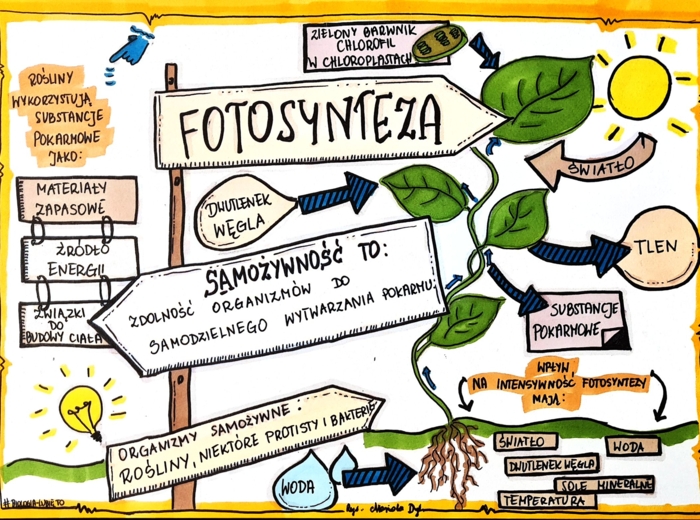 ZIELONY BARWNIK
CHLOROFIL
W CHLOROPLASTACH
ROŚLINY
WYKORZYSTUJĄ
SUBSTANCJE
POKARMOWE
JAKO:
MATERIAŁY
ZAPASOWE
ŹRÓDŁO
ENERGII
ZWIĄZKI
DO
BUDOWY CIAŁA
FOTOSYNTEZA
ŚWIATŁO
DWUTLENEK
WĘGLA
TLEN
SAMOŻYWNOŚĆ TO:
ZDOLNOŚĆ ORGANIZMÓW DO
SAMODZIELNEGO WYTWARZANIA POKARMU
SUBSTANCJE
POKARMOWE
WPŁYW
NA INTENSYWNOŚĆ FOTOSYNTEZY
MAJĄ:
ORGANIZMY SAMOŻYWNE:
ROŚLINY, NIEKTÓRE PROTISTY I BAKTERIE
WODA
ŚWIATŁO
WODA
DWUTLENEK WĘGLA
SOLE MINERALNE
TEMPERATURA